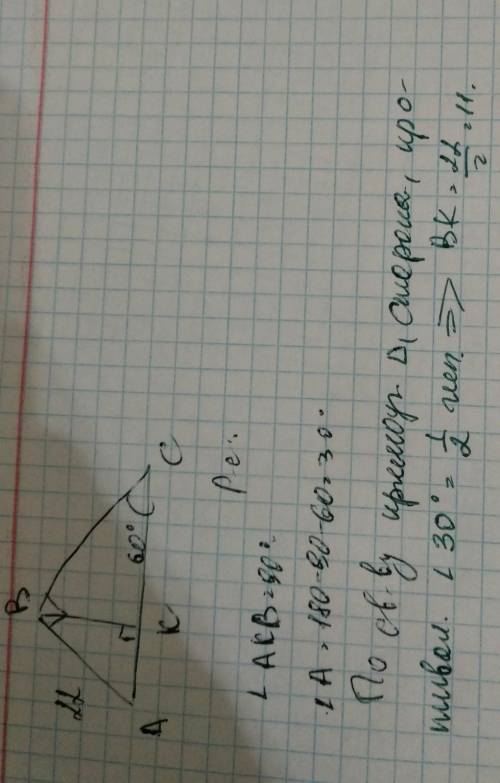 B
22
60°
A
K
C
Р-е:
∟AKB=90°.
∟A = 180-90-60=30°
По св-ву прямоуг. Δ, сторона, про-
тивол. ∟30° = 1/2 гип. => BK = 22/2 = 11.